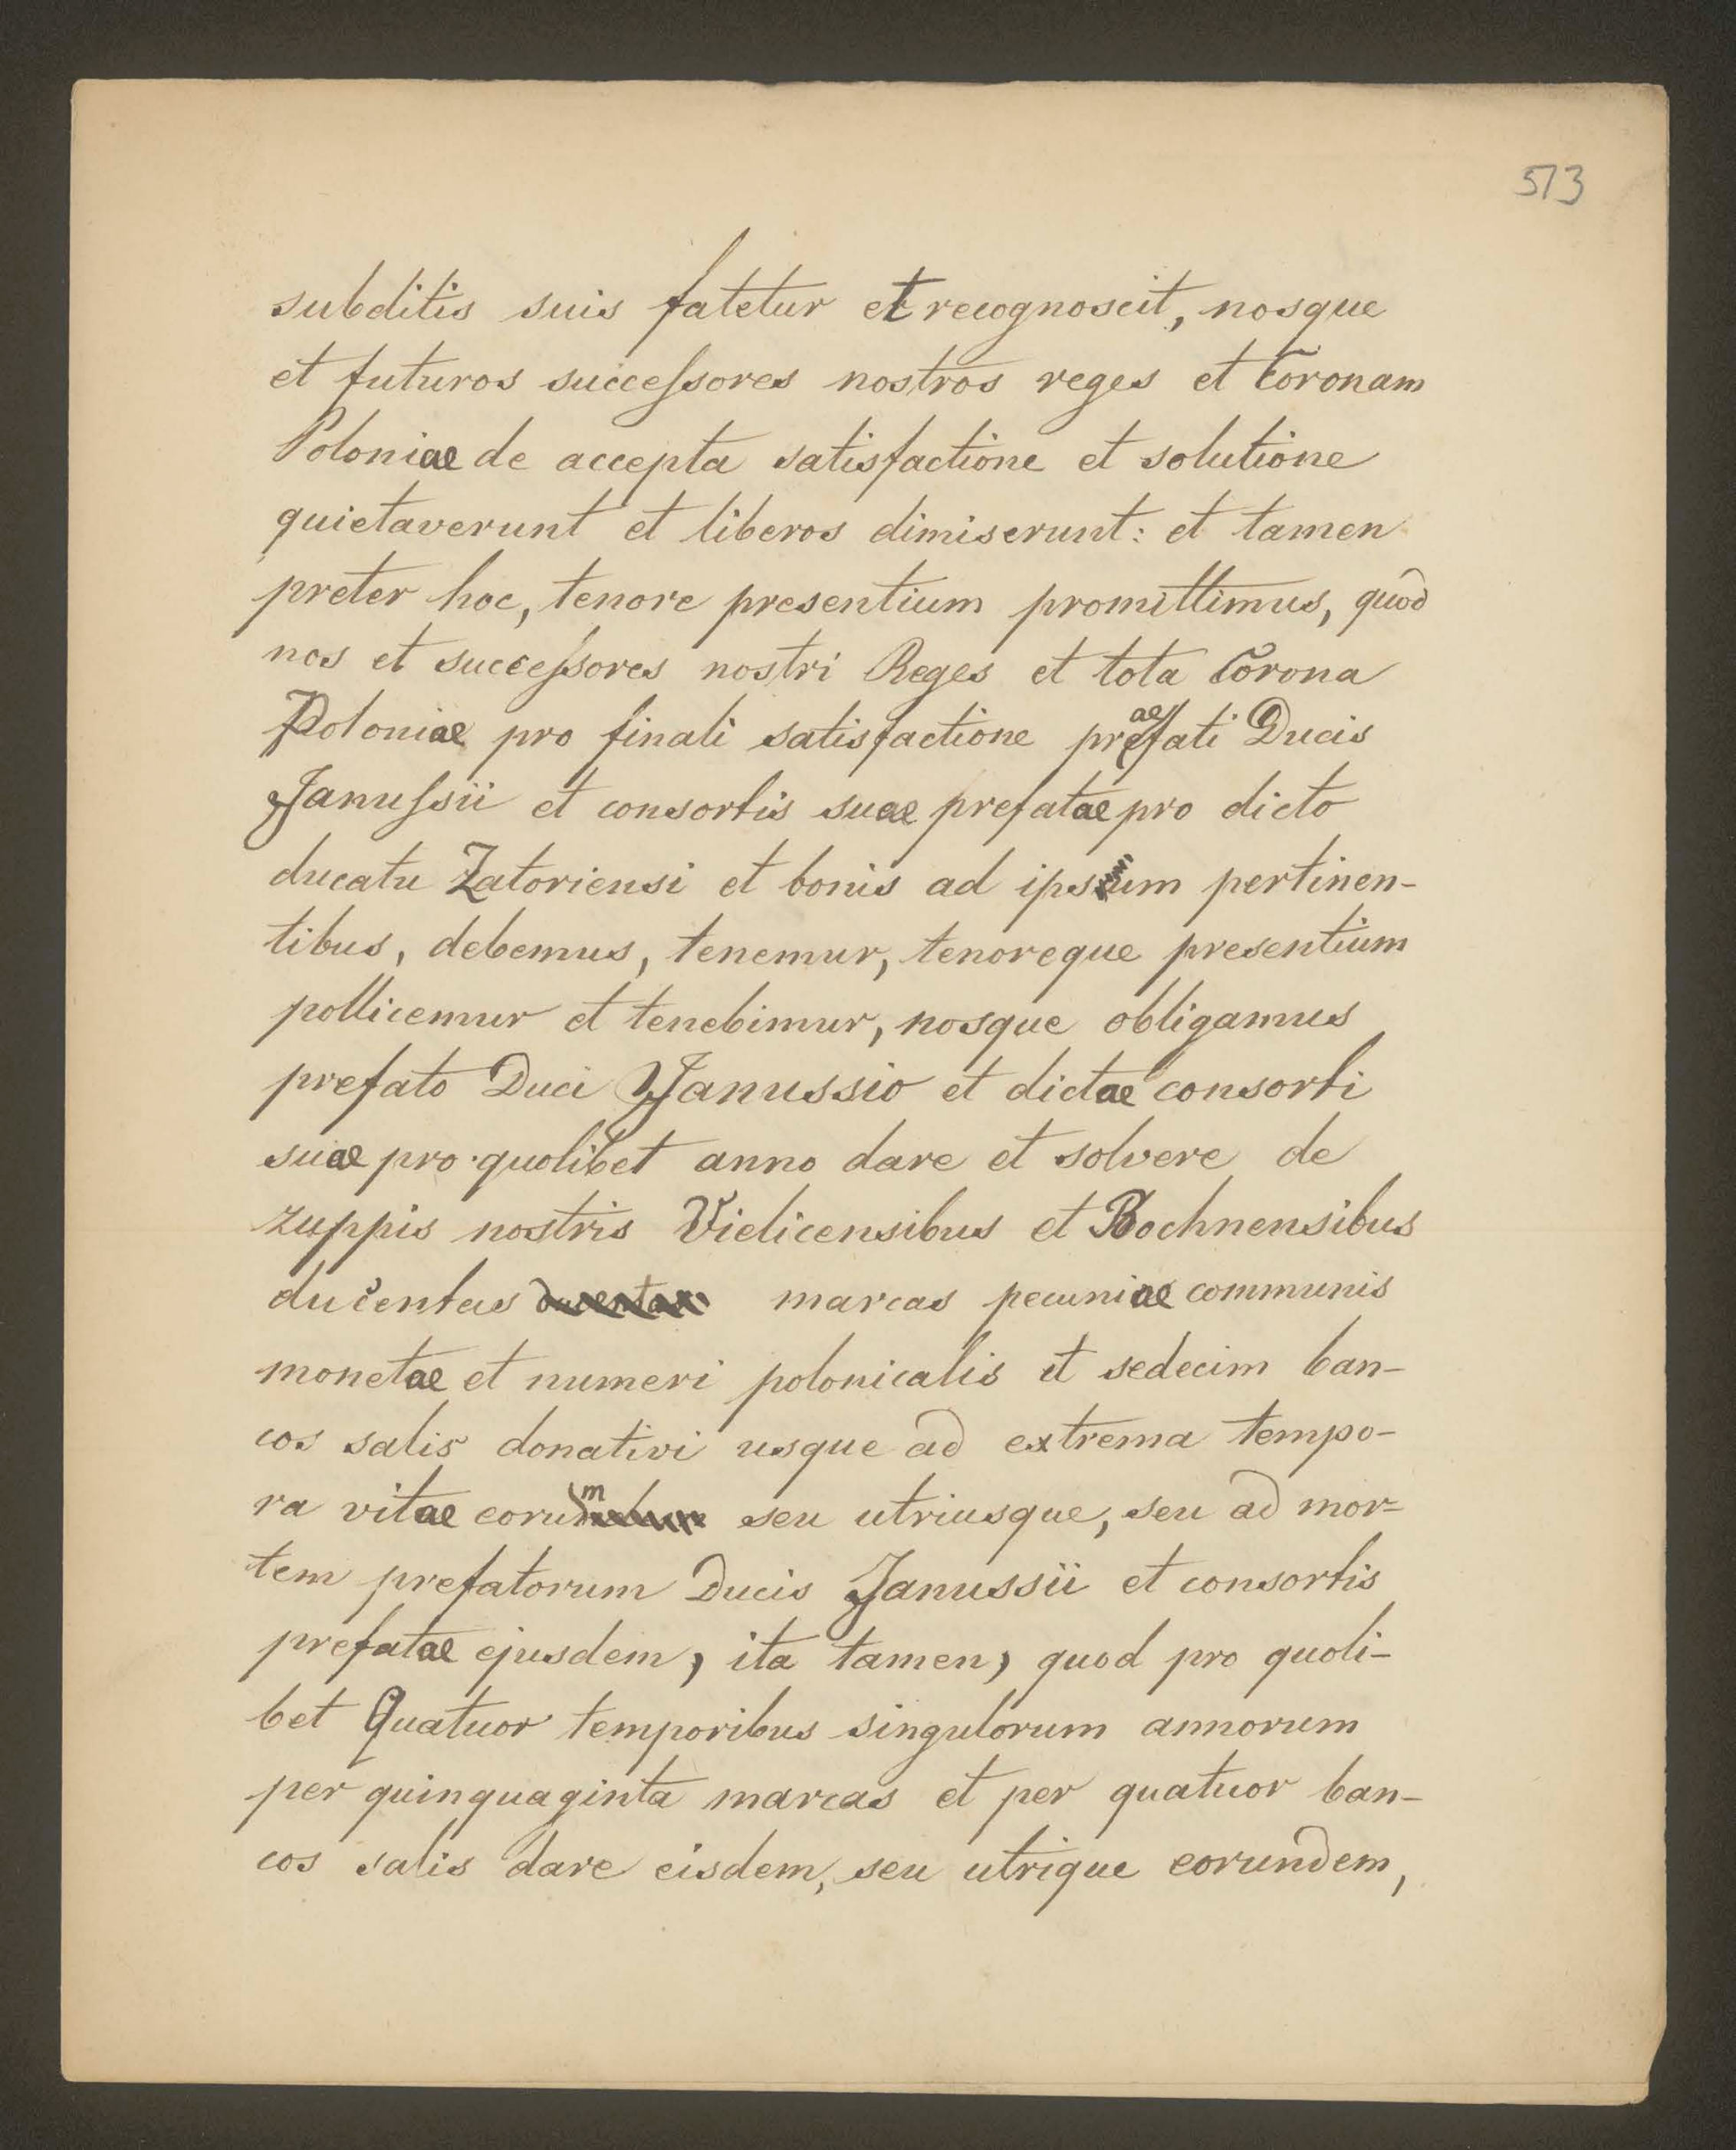 513
subditis suis fatetur et recognoscit, nosque
et futuros successores nostros reges et Coronam
Poloniae de accepta satisfactione et solutione
quietaverunt et liberos dimiserunt: et tamen
preter hoc, tenore presentium promittimus, quod
nos et successores nostri Reges et tota Corona
Poloniae pro finali satisfactione praefati Ducis
Janussii et consortis suae prefatae pro dicto
ducatu Zatoriensi et bonis ad ipsum pertinen-
tibus, debemus, tenemur, tenoreque presentium
pollicemur et tenebimur, nosque obligamus
prefato Duci Janussio et dictae consorti
suae pro quolibet anno dare et solvere de
zuppis nostris Vielicensibus et Bochnensibus
ducentas ducentas marcas pecuniae communis
monetae et numeri polonicalis et sedecim ban-
cos salis donativi usque ad extrema tempo-
ra vitae eorum seu utriusque, seu ad mor-
tem prefatorum Ducis Janussii et consortis
prefatae ejusdem, ita tamen, quod pro quoli-
bet Quatuor temporibus singulorum annorum
per quinquaginta marcas et per quatuor ban-
cos salis dare eisdem, seu utrique eorundem,